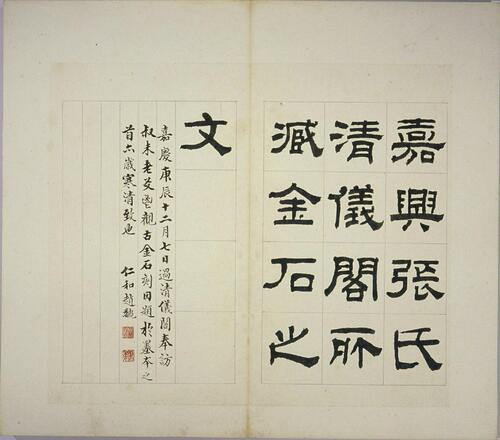 嘉興張氏
清儀閣所
臧金石之
文
嘉慶庚辰十二月七日過清儀閣奉訪
叔未老友鬯觀古金石刻因題於墨本之
首亦歲寒清致也 仁和趙魏